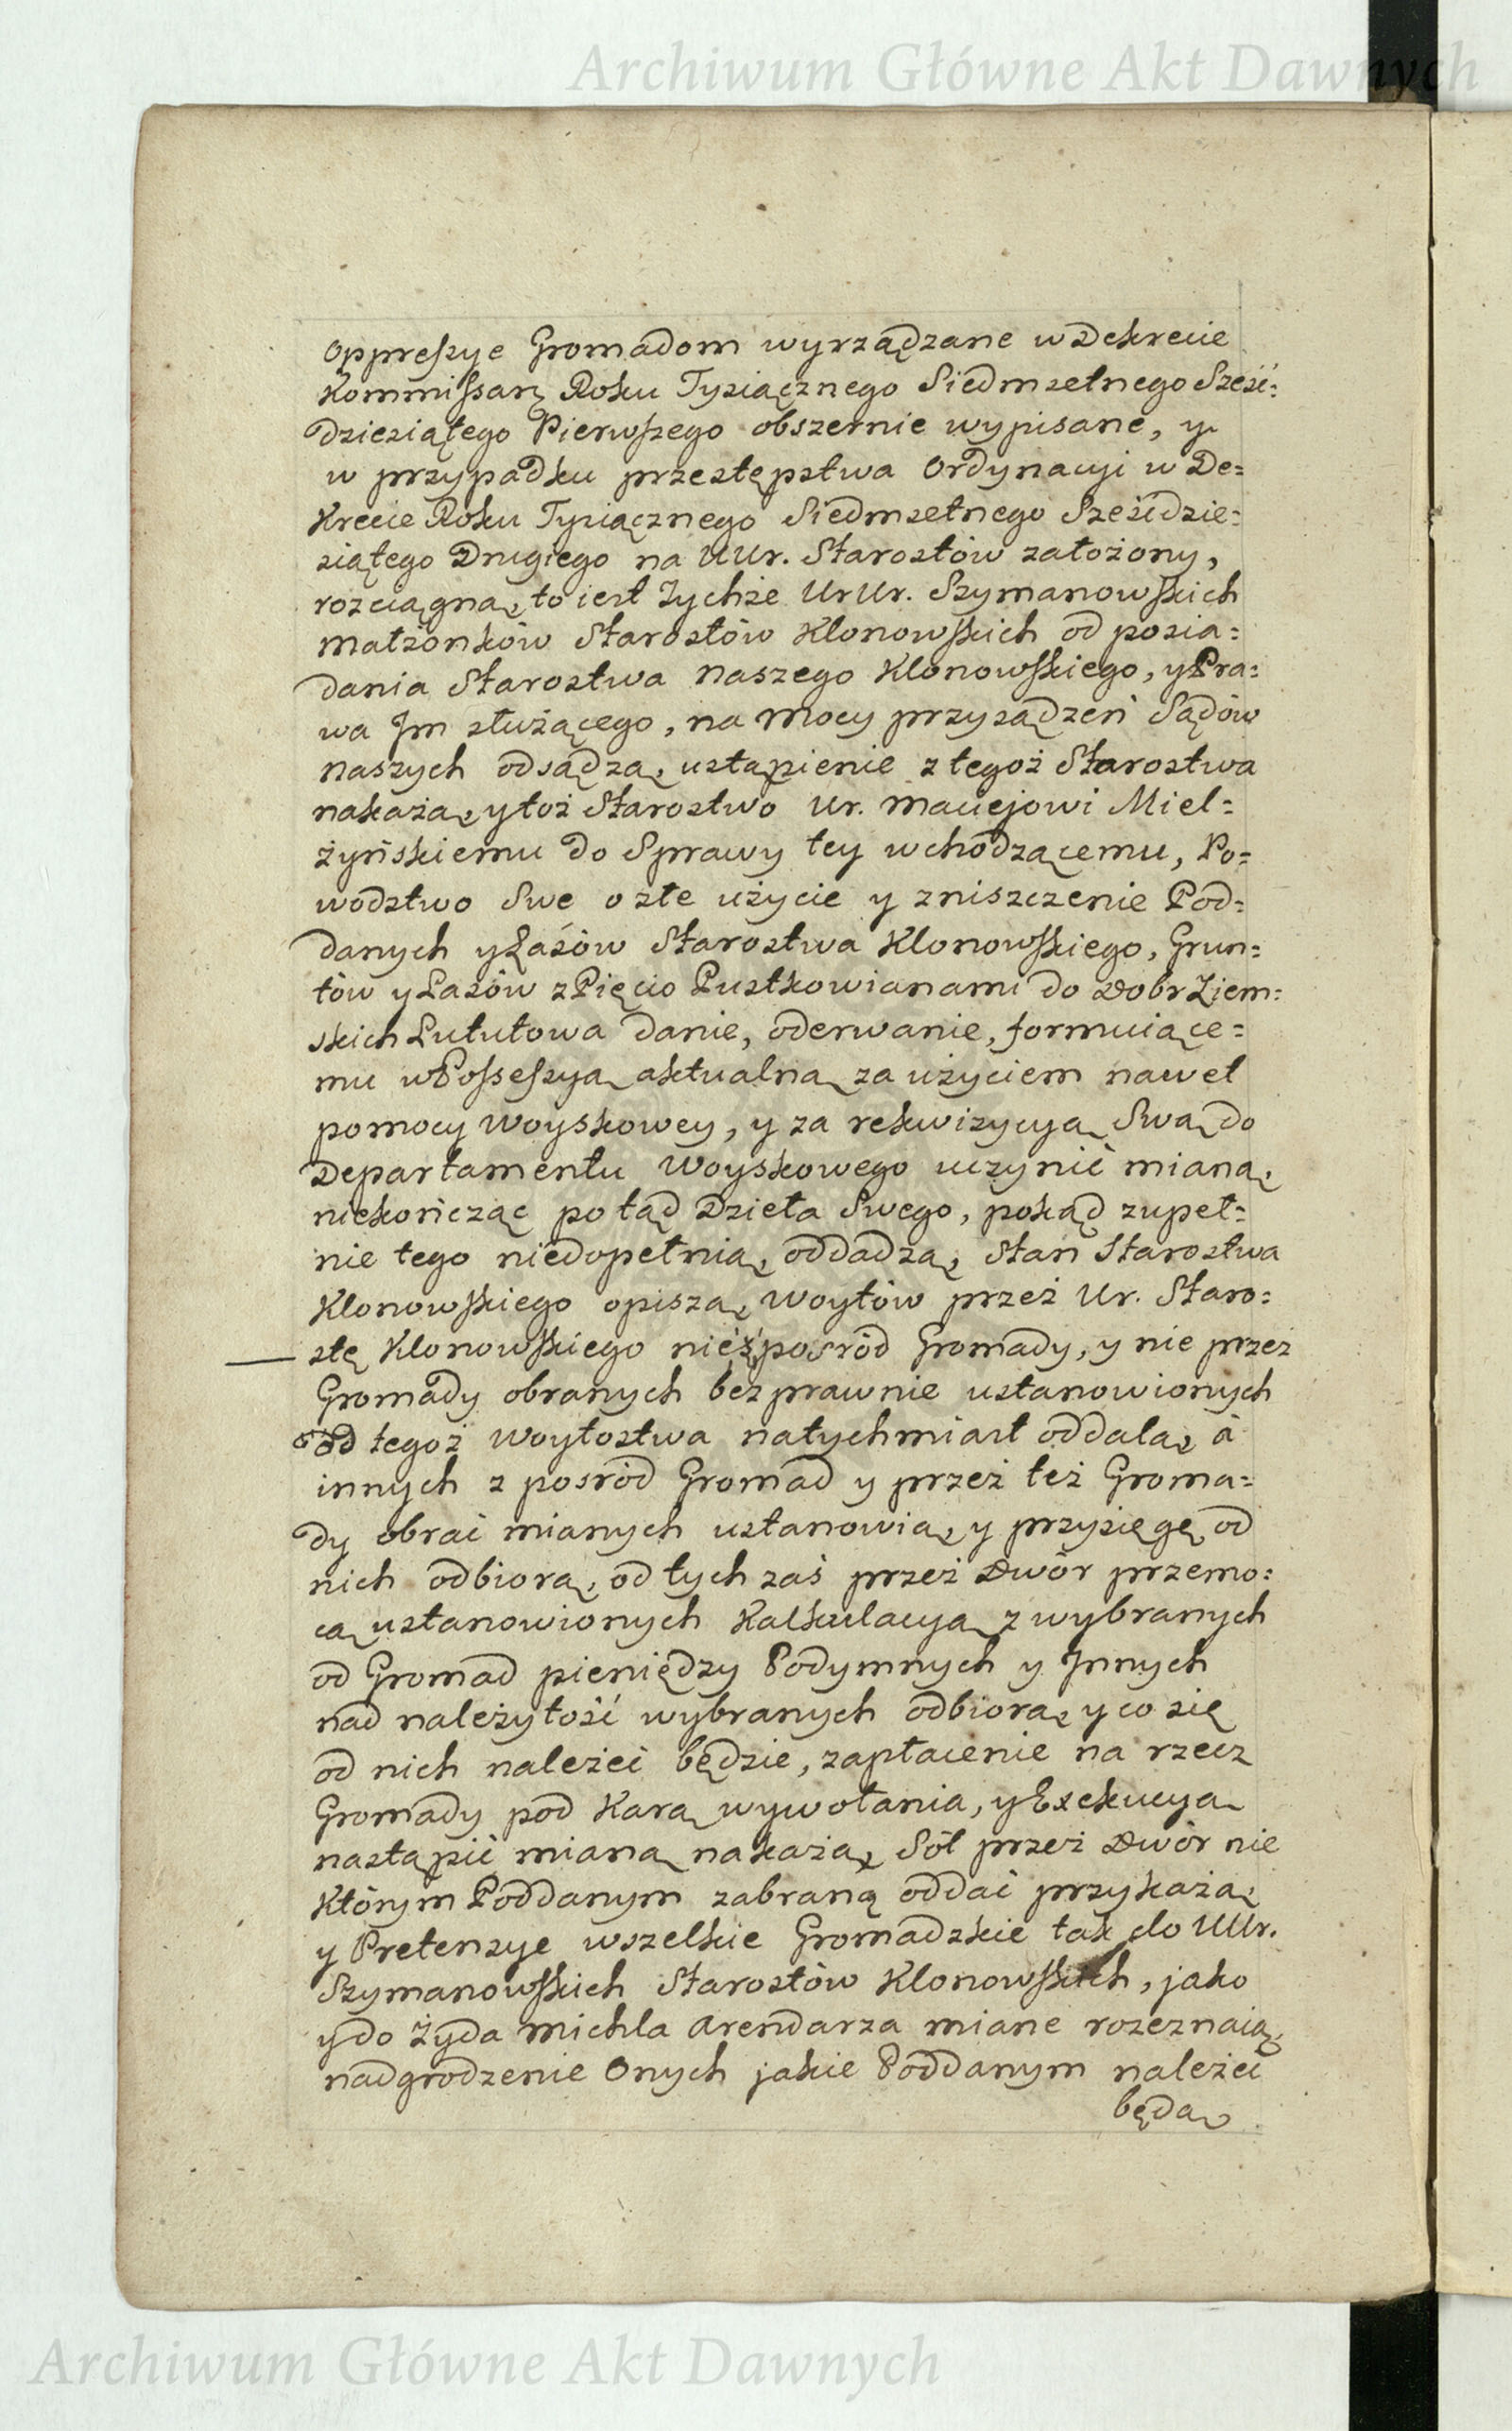 Archiwum Główne Akt Dawnych
Oppressye Gromadom wyrządzane w Dekrecie
Kommissarz Roku Tysiącznego Siedmsetnego Sześć=
dziesiątego Pierwszego obszernie wypisane, y
w przypadku przestępstwa Ordynacyi w De=
krecie Roku Tysiącznego Siedmsetnego Sześćdzie=
siątego Drugiego na UUr. Starostów założony,
rozciągną, to iest Tychże UrUr. Szymanowskich
małżonków Starostów Klonowskich od posia=
dania Starostwa naszego Klonowskiego, y Pra=
wa Jm służącego, na mocy przysądzeń Sądów
naszych odsądzą, ustąpienie z tegoż Starostwa
nakażą, y toż Starostwo Ur. Maciejowi Miel=
żyńskiemu do Sprawy tey wchodzącemu, Po=
wodztwo Swe o złe użycie y zniszczenie Pod=
danych y Lasów Starostwa Klonowskiego, Grun=
tów y Lasów z Pięcio Pustkowianami do Dobr Ziem=
skich Lututowa danie, oderwanie, formuiące=
mu w Possessyą aktualną za użyciem nawet
pomocy woyskowey, y za rekwizycyą Swą do
Departamentu Woyskowego uczynić mianą,
niekończąc potąd Dzieła Swego, pokąd zupeł=
nie tego niedopełnią, oddadzą, Stan Starostwa
Klonowskiego opiszą, Woytów przez Ur. Staro=
stę Klonowskiego nieźpośród Gromady, y nie przez
Gromady obranych bezprawnie ustanowionych
od tegoż Woytostwa natychmiast oddalą, á
innych z pośród Gromad y przez też Groma=
dy obrać mianych ustanowią, y przysięgę od
nich odbiorą, od tych zaś przez Dwór przemo=
cą ustanowionych Kalkulacyą z wybranych
od Gromad pieniędzy Podymnych y Jnnych
nad należytość wybranych odbiorą, y co się
od nich należeć będzie, zapłacenie na rzecz
Gromady pod Karą wywołania, y Exekucyą
nastąpić mianą nakażą, Sól przez Dwór nie
którym Poddanym zabraną oddać przykażą,
y Pretensye wszelkie Gromadzkie tak do UUr.
Szymanowskich Starostów Klonowskich, jako
y do Żyda Michla Arendarza miane rozeznaią,
nadgrodzenie Onych jakie Poddanym należeć
będą
Archiwum Główne Akt Dawnych